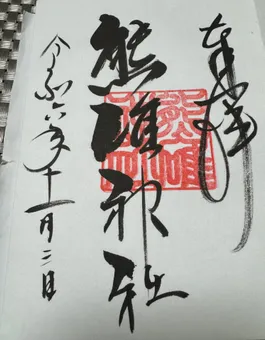 奉拝
熊碓神社
令和六年十一月二日